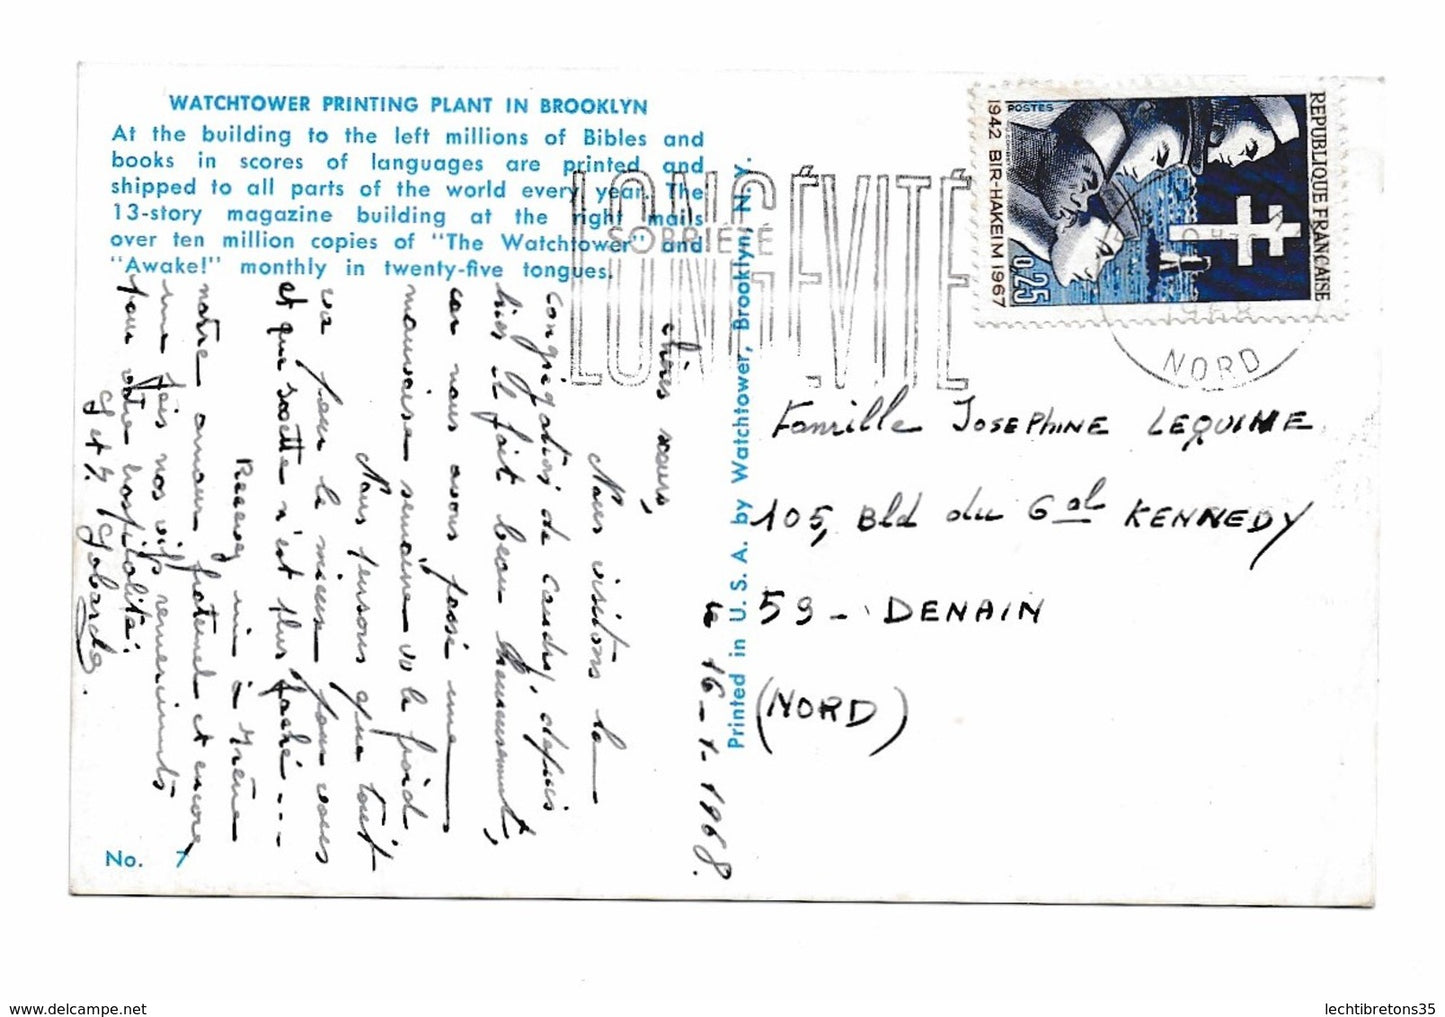 WATCHTOWER PRINTING PLANT IN BROOKLYN
At the building to the left millions of Bibles and
books in scores of languages are printed and
shipped to all parts of the world every year. The
13-story magazine building at the right mails
over ten million copies of "The Watchtower" and
"Awake!" monthly in twenty-five tongues.
No. 7
Printed in U. S. A. by Watchtower, Brooklyn, N. Y.
SOBRIÉTÉ
LONGÉVITÉ
REPUBLIQUE FRANÇAISE
POSTES
1942 BIR-HAKEIM 1967
0,25
1968
NORD
le 16-1-1968.
Chères sœurs,
Nous visitons la
congrégation de Caudry, depuis
hier. Il fait beau heureusement,
car nous avons passé une
mauvaise semaine vu le froid.
Nous pensons que tout
va pour le mieux pour vous
et que Josette n'est plus fâché...
Recevez ici à
notre amour fraternel et encore
une fois nos vifs remerciements
pour votre hospitalité.
Famille JOSEPHINE LEQUIME
105, Bld du Gal KENNEDY
59 - DENAIN
(NORD)
lechtibretons35
delcampe.net